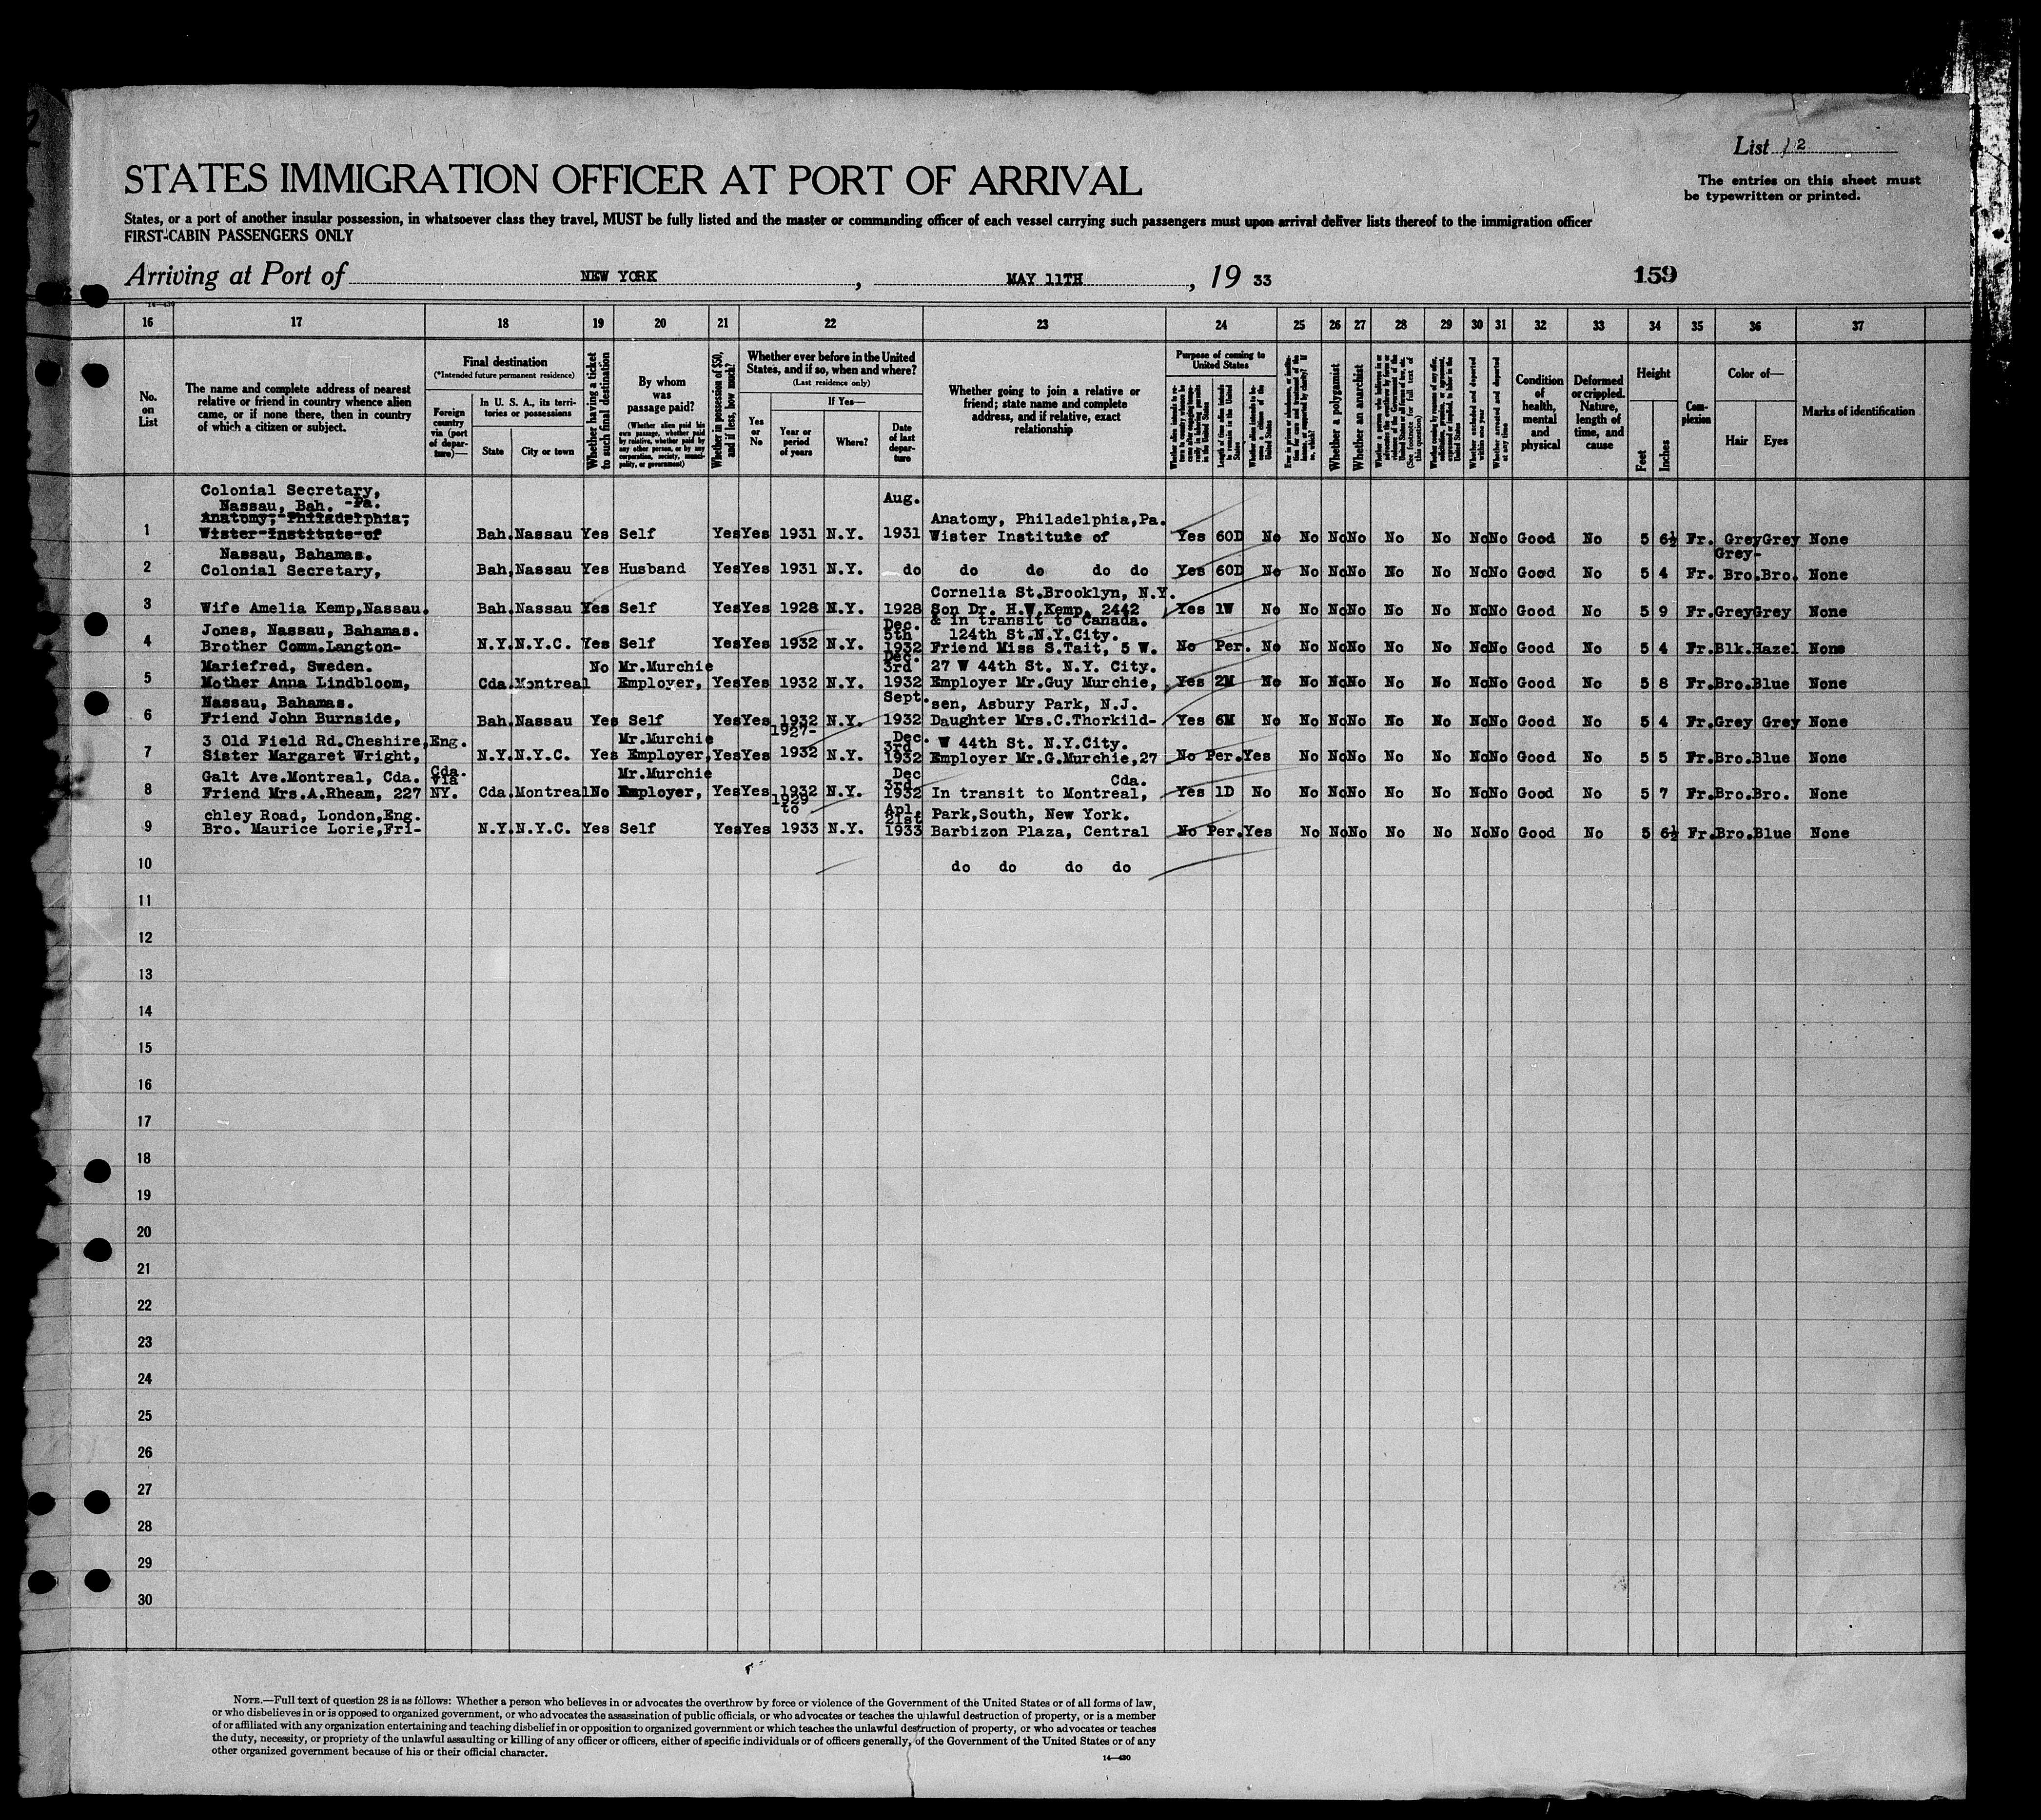 List 2
STATES IMMIGRATION OFFICER AT PORT OF ARRIVAL
The entries on this sheet must
be typewritten or printed.
States, or a port of another insular possession, in whatsoever class they travel, MUST be fully listed and the master or commanding officer of each vessel carrying such passengers must upon arrival deliver lists thereof to the immigration officer
FIRST-CABIN PASSENGERS ONLY
Arriving at Port of NEW YORK, MAY 11TH, 19 33
159
16 17 18 19 20 21 22 23 24 25 26 27 28 29 30 31 32 33 34 35 36 37
No. on List
The name and complete address of nearest
relative or friend in country whence alien
came, or if none there, then in country
of which a citizen or subject.
Final destination
(*Intended future permanent residence)
Foreign country via (port of departure)—
In U. S. A., its territories or possessions
State
City or town
Whether having a ticket to such final destination
By whom was passage paid?
(Whether alien paid his own passage, whether paid by relative, whether paid by any other person, or by any corporation, society, municipality, or government)
Whether in possession of $50, and if less, how much?
Whether ever before in the United States, and if so, when and where?
(Last residence only)
Yes or No
If Yes—
Year or period of years
Where?
Date of last departure
Whether going to join a relative or
friend; state name and complete
address, and if relative, exact
relationship
Purpose of coming to United States
Whether a polygamist
Whether an anarchist
Condition of health, mental and physical
Deformed or crippled. Nature, length of time, and cause
Height
Feet
Inches
Complexion
Color of—
Hair
Eyes
Marks of identification
Colonial Secretary,
Nassau, Bah. -Pa.
Anatomy, Philadelphia,
1 Wister Institute of Bah. Nassau Yes Self Yes Yes 1931 N.Y. Aug. 1931 Anatomy, Philadelphia,Pa. Wister Institute of Yes 60D No No No No No No No No Good No 5 6½ Fr. Grey Grey None
Nassau, Bahamas.
2 Colonial Secretary, Bah. Nassau Yes Husband Yes Yes 1931 N.Y. do do do do do Yes 60D No No No No No No No No Good No 5 4 Fr. Grey-Bro. Bro. None
Cornelia St.Brooklyn, N.Y.
3 Wife Amelia Kemp,Nassau. Bah. Nassau Yes Self Yes Yes 1928 N.Y. 1928 Son Dr. H.W.Kemp, 2442 Yes 1W No No No No No No No No Good No 5 9 Fr. Grey Grey None
& in transit to Canada.
Jones, Nassau, Bahamas. Dec. 5th 124th St.N.Y.City.
4 Brother Comm.Langton- N.Y. N.Y.C. Yes Self Yes Yes 1932 N.Y. 1932 Friend Miss S.Tait, 5 W. No Per. No No No No No No No No Good No 5 4 Fr. Blk. Hazel None
Mariefred, Sweden. No Mr.Murchie Dec. 3rd 27 W 44th St. N.Y. City.
5 Mother Anna Lindbloom, Cda. Montreal Employer, Yes Yes 1932 N.Y. 1932 Employer Mr.Guy Murchie, Yes 2M No No No No No No No No Good No 5 8 Fr. Bro. Blue None
Nassau, Bahamas. Sept. sen, Asbury Park, N.J.
6 Friend John Burnside, Bah. Nassau Yes Self Yes Yes 1932 N.Y. 1932 Daughter Mrs.C.Thorkild- Yes 6M No No No No No No No No Good No 5 4 Fr. Grey Grey None
3 Old Field Rd.Cheshire,Eng. Mr.Murchie 1927- Dec. 3rd W 44th St. N.Y.City.
7 Sister Margaret Wright, N.Y. N.Y.C. Yes Employer, Yes Yes 1932 N.Y. 1932 Employer Mr.G.Murchie,27 No Per. Yes No No No No No No No Good No 5 5 Fr. Bro. Blue None
Galt Ave.Montreal, Cda. Cda. via Mr.Murchie Dec 3rd Cda.
8 Friend Mrs.A.Rheam, 227 NY. Cda. Montreal No Employer, Yes Yes 1932 N.Y. 1932 In transit to Montreal, Yes 1D No No No No No No No No Good No 5 7 Fr. Bro. Bro. None
chley Road, London,Eng. 1929 to Apl. 21st Park,South, New York.
9 Bro. Maurice Lorie,Fri- N.Y. N.Y.C. Yes Self Yes Yes 1933 N.Y. 1933 Barbizon Plaza, Central No Per. Yes No No No No No No No Good No 5 6½ Fr. Bro. Blue None
10 do do do do
11
12
13
14
15
16
17
18
19
20
21
22
23
24
25
26
27
28
29
30
NOTE.—Full text of question 28 is as follows: Whether a person who believes in or advocates the overthrow by force or violence of the Government of the United States or of all forms of law,
or who disbelieves in or is opposed to organized government, or who advocates the assassination of public officials, or who advocates or teaches the unlawful destruction of property, or is a member
of or affiliated with any organization entertaining and teaching disbelief in or opposition to organized government or which teaches the unlawful destruction of property, or who advocates or teaches
the duty, necessity, or propriety of the unlawful assaulting or killing of any officer or officers, either of specific individuals or of officers generally, of the Government of the United States or of any
other organized government because of his or their official character.
14—430